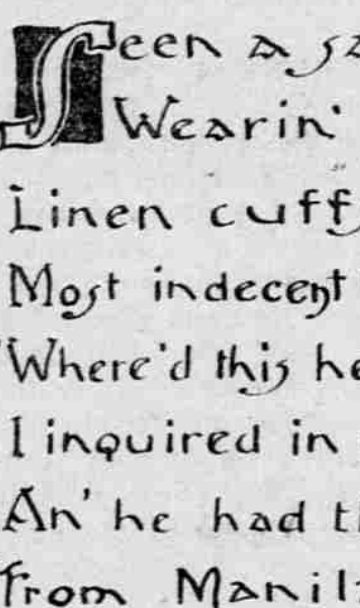 Seen a sa
Wearin'
Linen cuff
Most indecent
'Where'd this he
I inquired in
An' he had t
From Manil